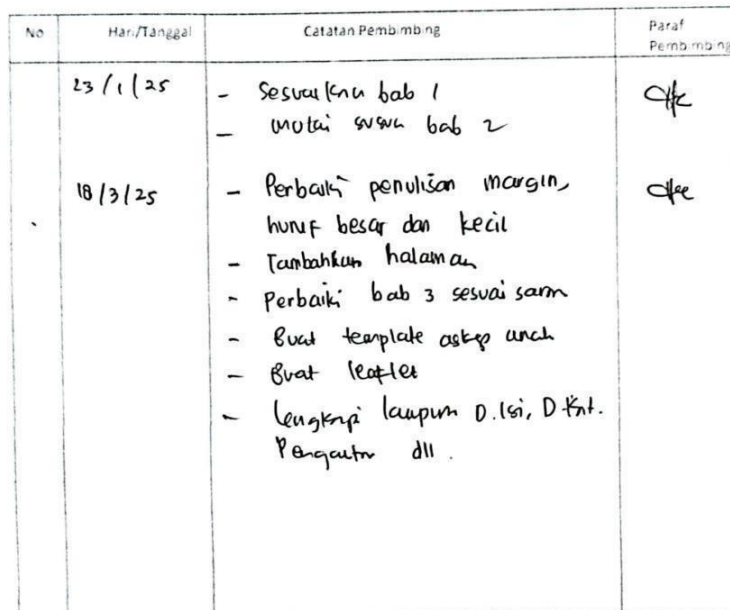 No Hari/Tanggal Catatan Pembimbing Paraf Pembimbing
23/1/25 - Sesuaikan bab 1
- mulai susun bab 2
18/3/25 - Perbaiki penulisan margin,
huruf besar dan kecil
- Tambahkan halaman
- Perbaiki bab 3 sesuai saran
- Buat template askep anak
- Buat leaflet
- Lengkapi D. Isi,
Pengantar dll.